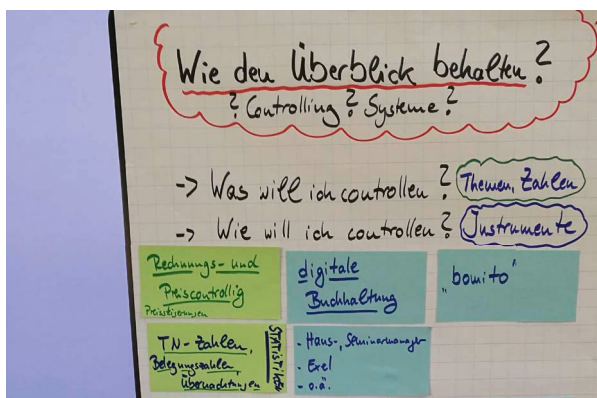 Wie den Überblick behalten?
? Controlling ? Systeme ?
-> Was will ich controllen ? Themen, Zahlen
-> Wie will ich controllen ? Instrumente
Rechnungs- und
Preiscontrollig
Preissteigerungen
digitale
Buchhaltung
"bomito"
TN-Zahlen,
Belegungszahlen,
Übernachtungen
STATISTIKEN
- Haus-, Seminarmanager
- Exel
- o.ä.